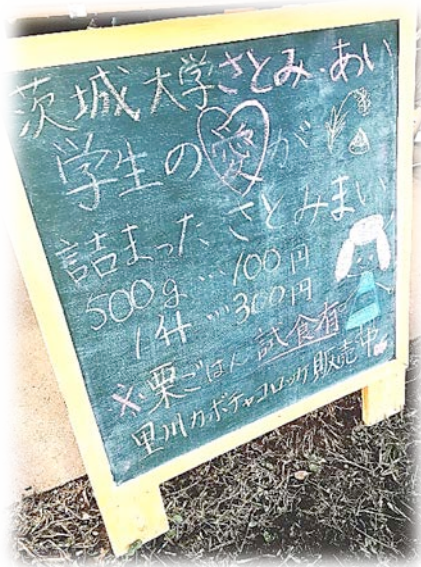 茨城大学さとみ・あい
学生の愛が
詰まったさとみまい
500g…100円
1升…300円
※栗ごはん試食有
里川カボチャコロッケ販売中